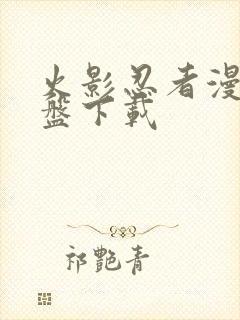 火影忍者漫
盤下載
祁艷青